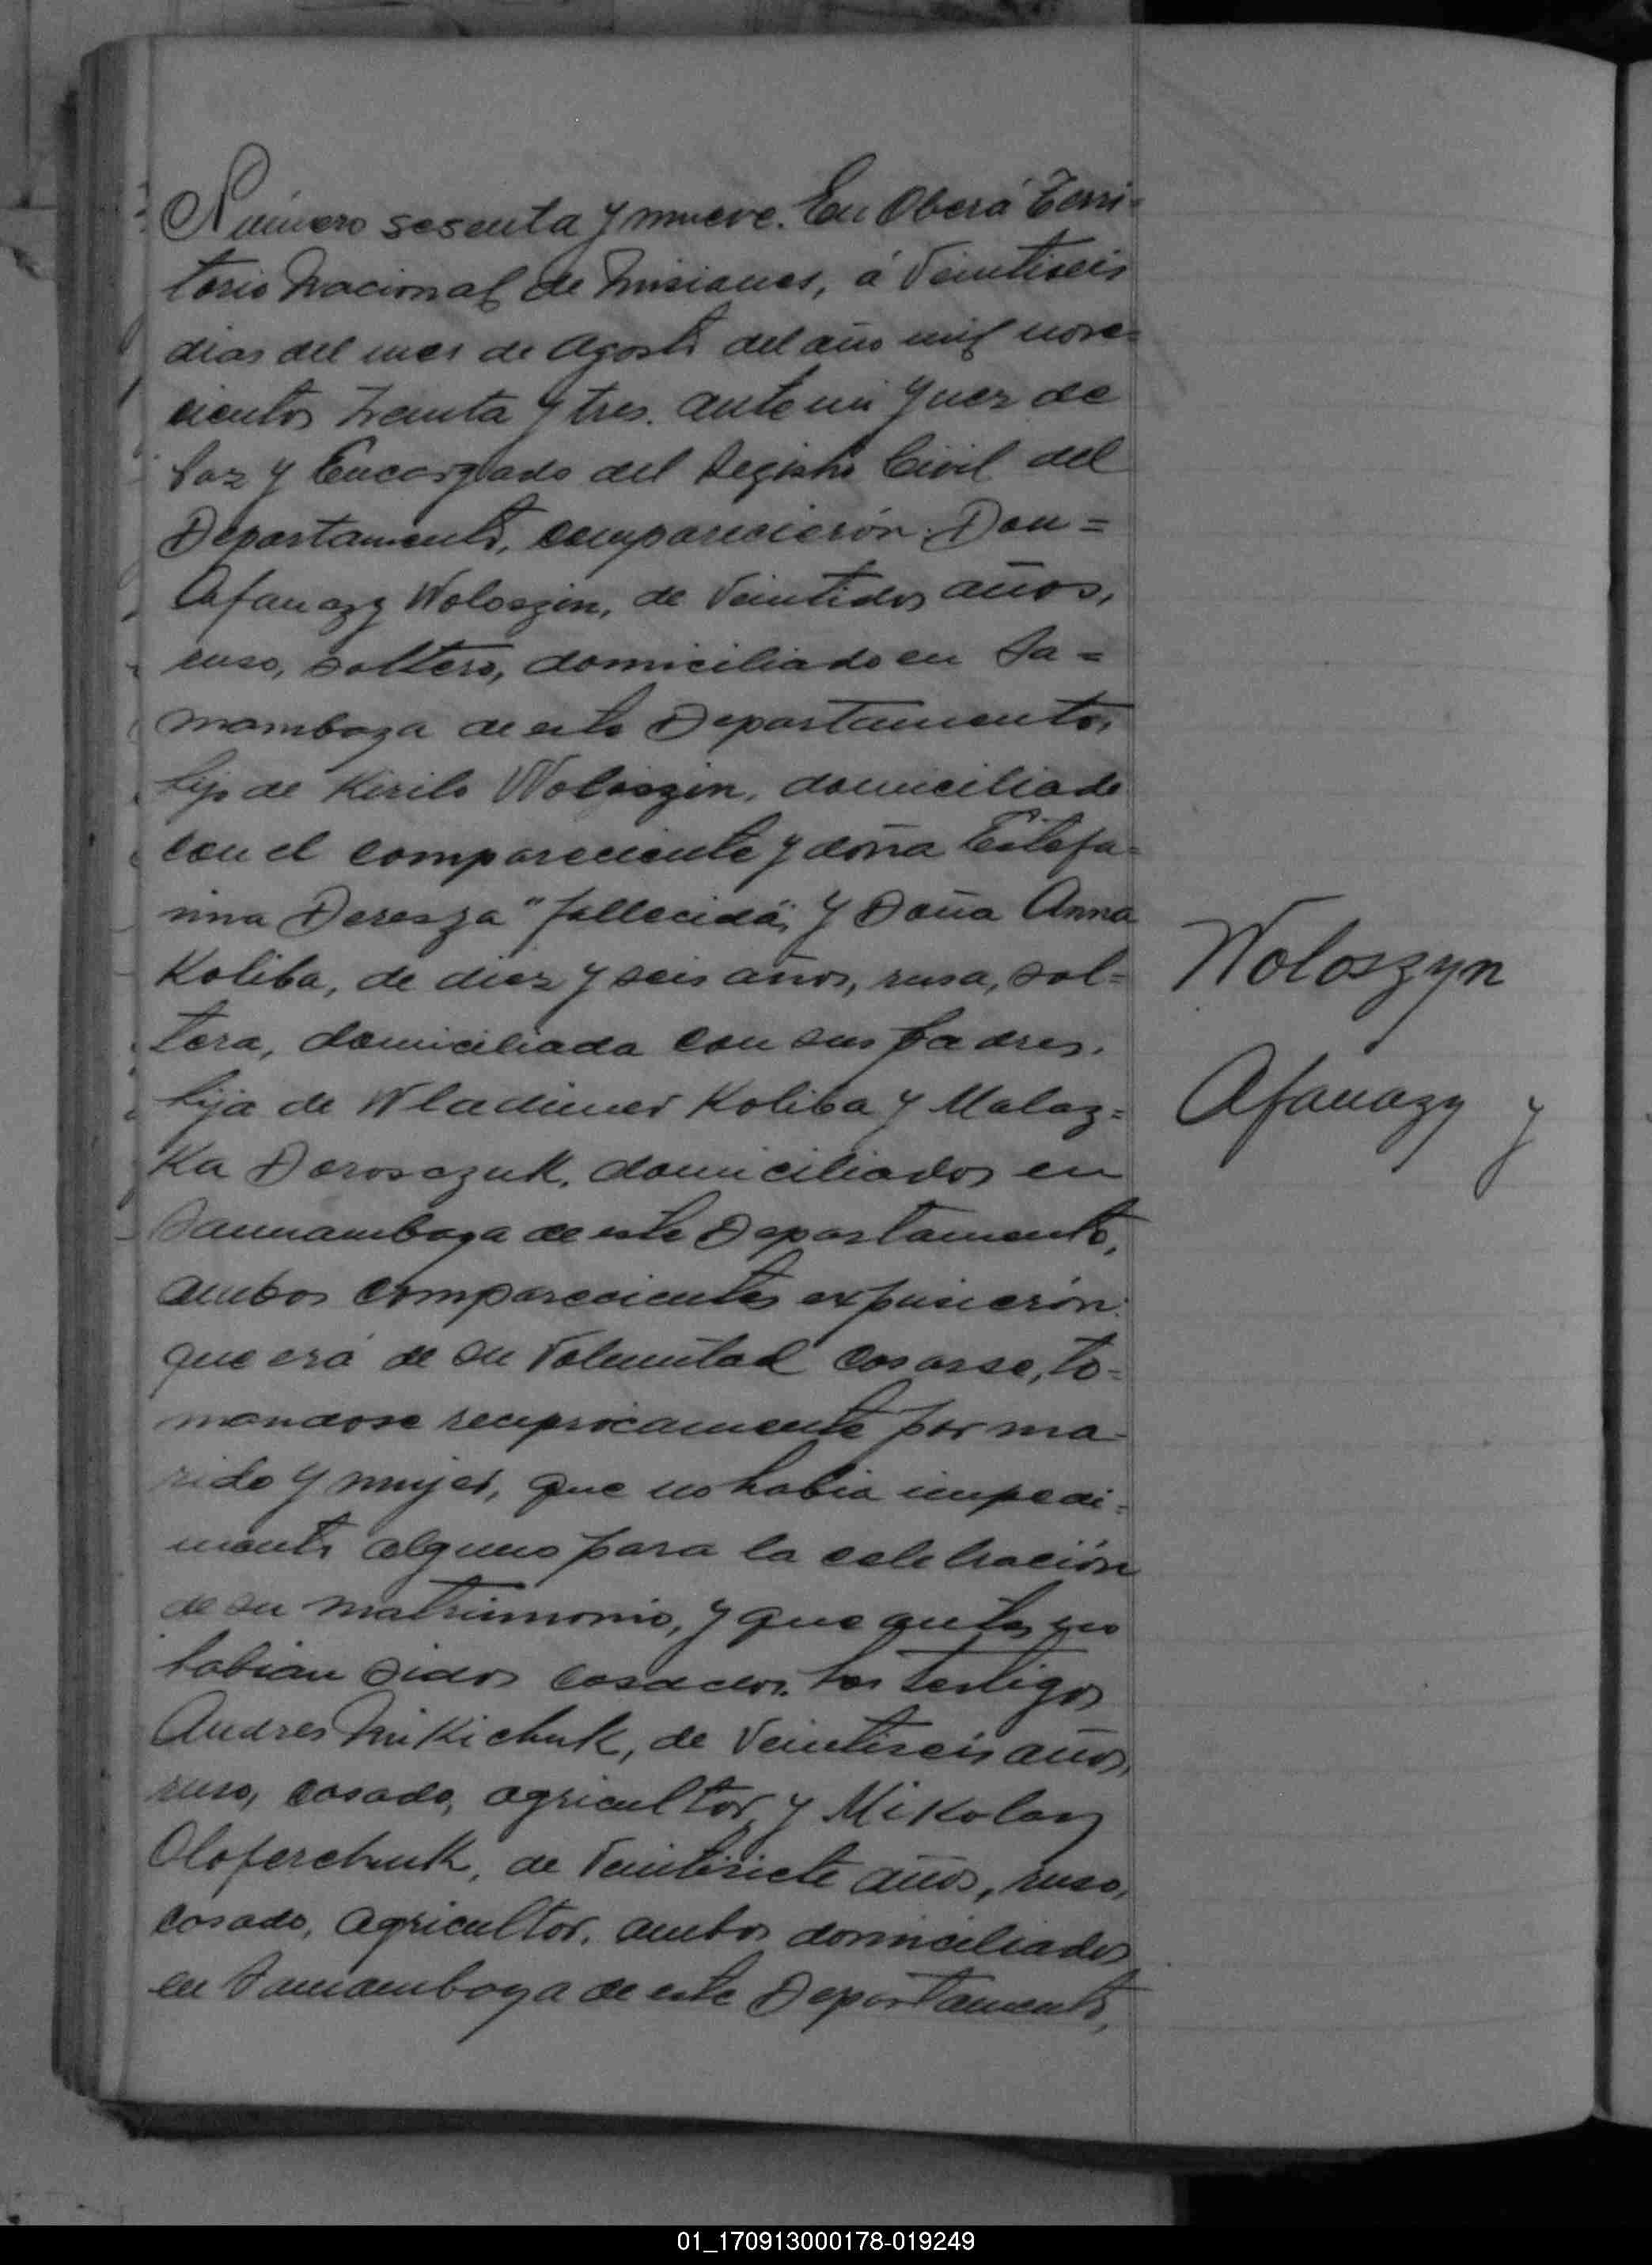 Número sesenta y nueve. En Oberá Terri-
torio Nacional de Misiones, á Veintiseis
dias del mes de Agosto del año mil nove-
cientos treinta y tres. ante mi Juez de
Paz y Encargado del Registro Civil del
Departamento, comparecierón Don=
Afanazy Woloszin, de Veintidos años,
ruso, soltero, domiciliado en Sa=
mambaya de este Departamento,
hijo de Kirilo Woloszin, domiciliado
con el compareciente y doña Estefa-
nina Deresza "fallecida", y Doña Anna
Koliba, de diez y seis años, rusa, sol=
tera, domiciliada con sus padres.
hija de Wladimer Koliba y Malaz=
Ka Dorosczuk, domiciliados en
Samambaya de este Departamento,
ambos comparecientes expusierón:
que erá de su Voluntad casarse, to-
mandose reciprocamente por ma-
rido y mujer, que no habia impedi-
mento alguno para la celebración
de su matrimonio, y que antes no
habian sidos casados. Los testigos
Andres MiKichuk, de Veintiseis años,
ruso, casado, agricultor, y MiKolay
OloferchuK, de Veintisiete años, ruso,
casado, agricultor, ambos domiciliados
en Samambaya de este Departamento,
Woloszyn
Afanazy y
01_170913000178-019249